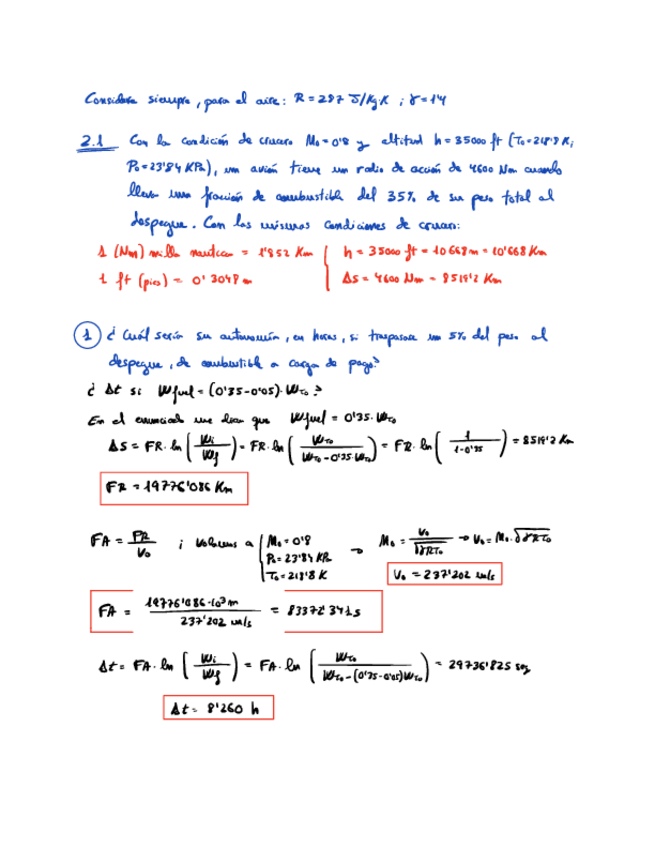 Considera siempre, para el aire: R = 287 J/KgK ; γ = 1'4
2.1 Con la condición de crucero M₀ = 0'8 y altitud h = 35000 ft (T₀ = 218'8 K;
P₀ = 23'84 KPa), un avión tiene un radio de acción de 4600 Nm cuando
lleva una fracción de combustible del 35% de su peso total al
despegue. Con las mismas condiciones de crucero:
1 (Nm) milla nautica = 1'852 Km
h = 35000 ft = 10668 m = 10'668 Km
1 ft (pies) = 0'3048 m
ΔS = 4600 Nm = 8519'2 Km
1 ¿Cuál sería su autonomía, en horas, si traspasase un 5% del peso al
despegue, de combustible a carga de pago?
¿Δt si Wfuel = (0'35 - 0'05) · W_TO?
En el enunciado me dicen que Wfuel = 0'35 · W_TO
ΔS = FR · ln (Wi / Wf) = FR · ln (W_TO / (W_TO - 0'35 · W_TO)) = FR · ln (1 / (1 - 0'35)) = 8519'2 Km
FR = 19776'086 Km
FA = FR / V₀ ; Volamos a { M₀ = 0'8
P₀ = 23'84 KPa
T₀ = 218'8 K
→ M₀ = V₀ / √(γRT₀) → V₀ = M₀ · √(γRT₀)
V₀ = 237'202 m/s
FA = 19776'086 · 10³ m / 237'202 m/s = 83372'341 s
Δt = FA · ln (Wi / Wf) = FA · ln (W_TO / (W_TO - (0'35 - 0'05) W_TO)) = 29736'825 seg
Δt = 8'260 h